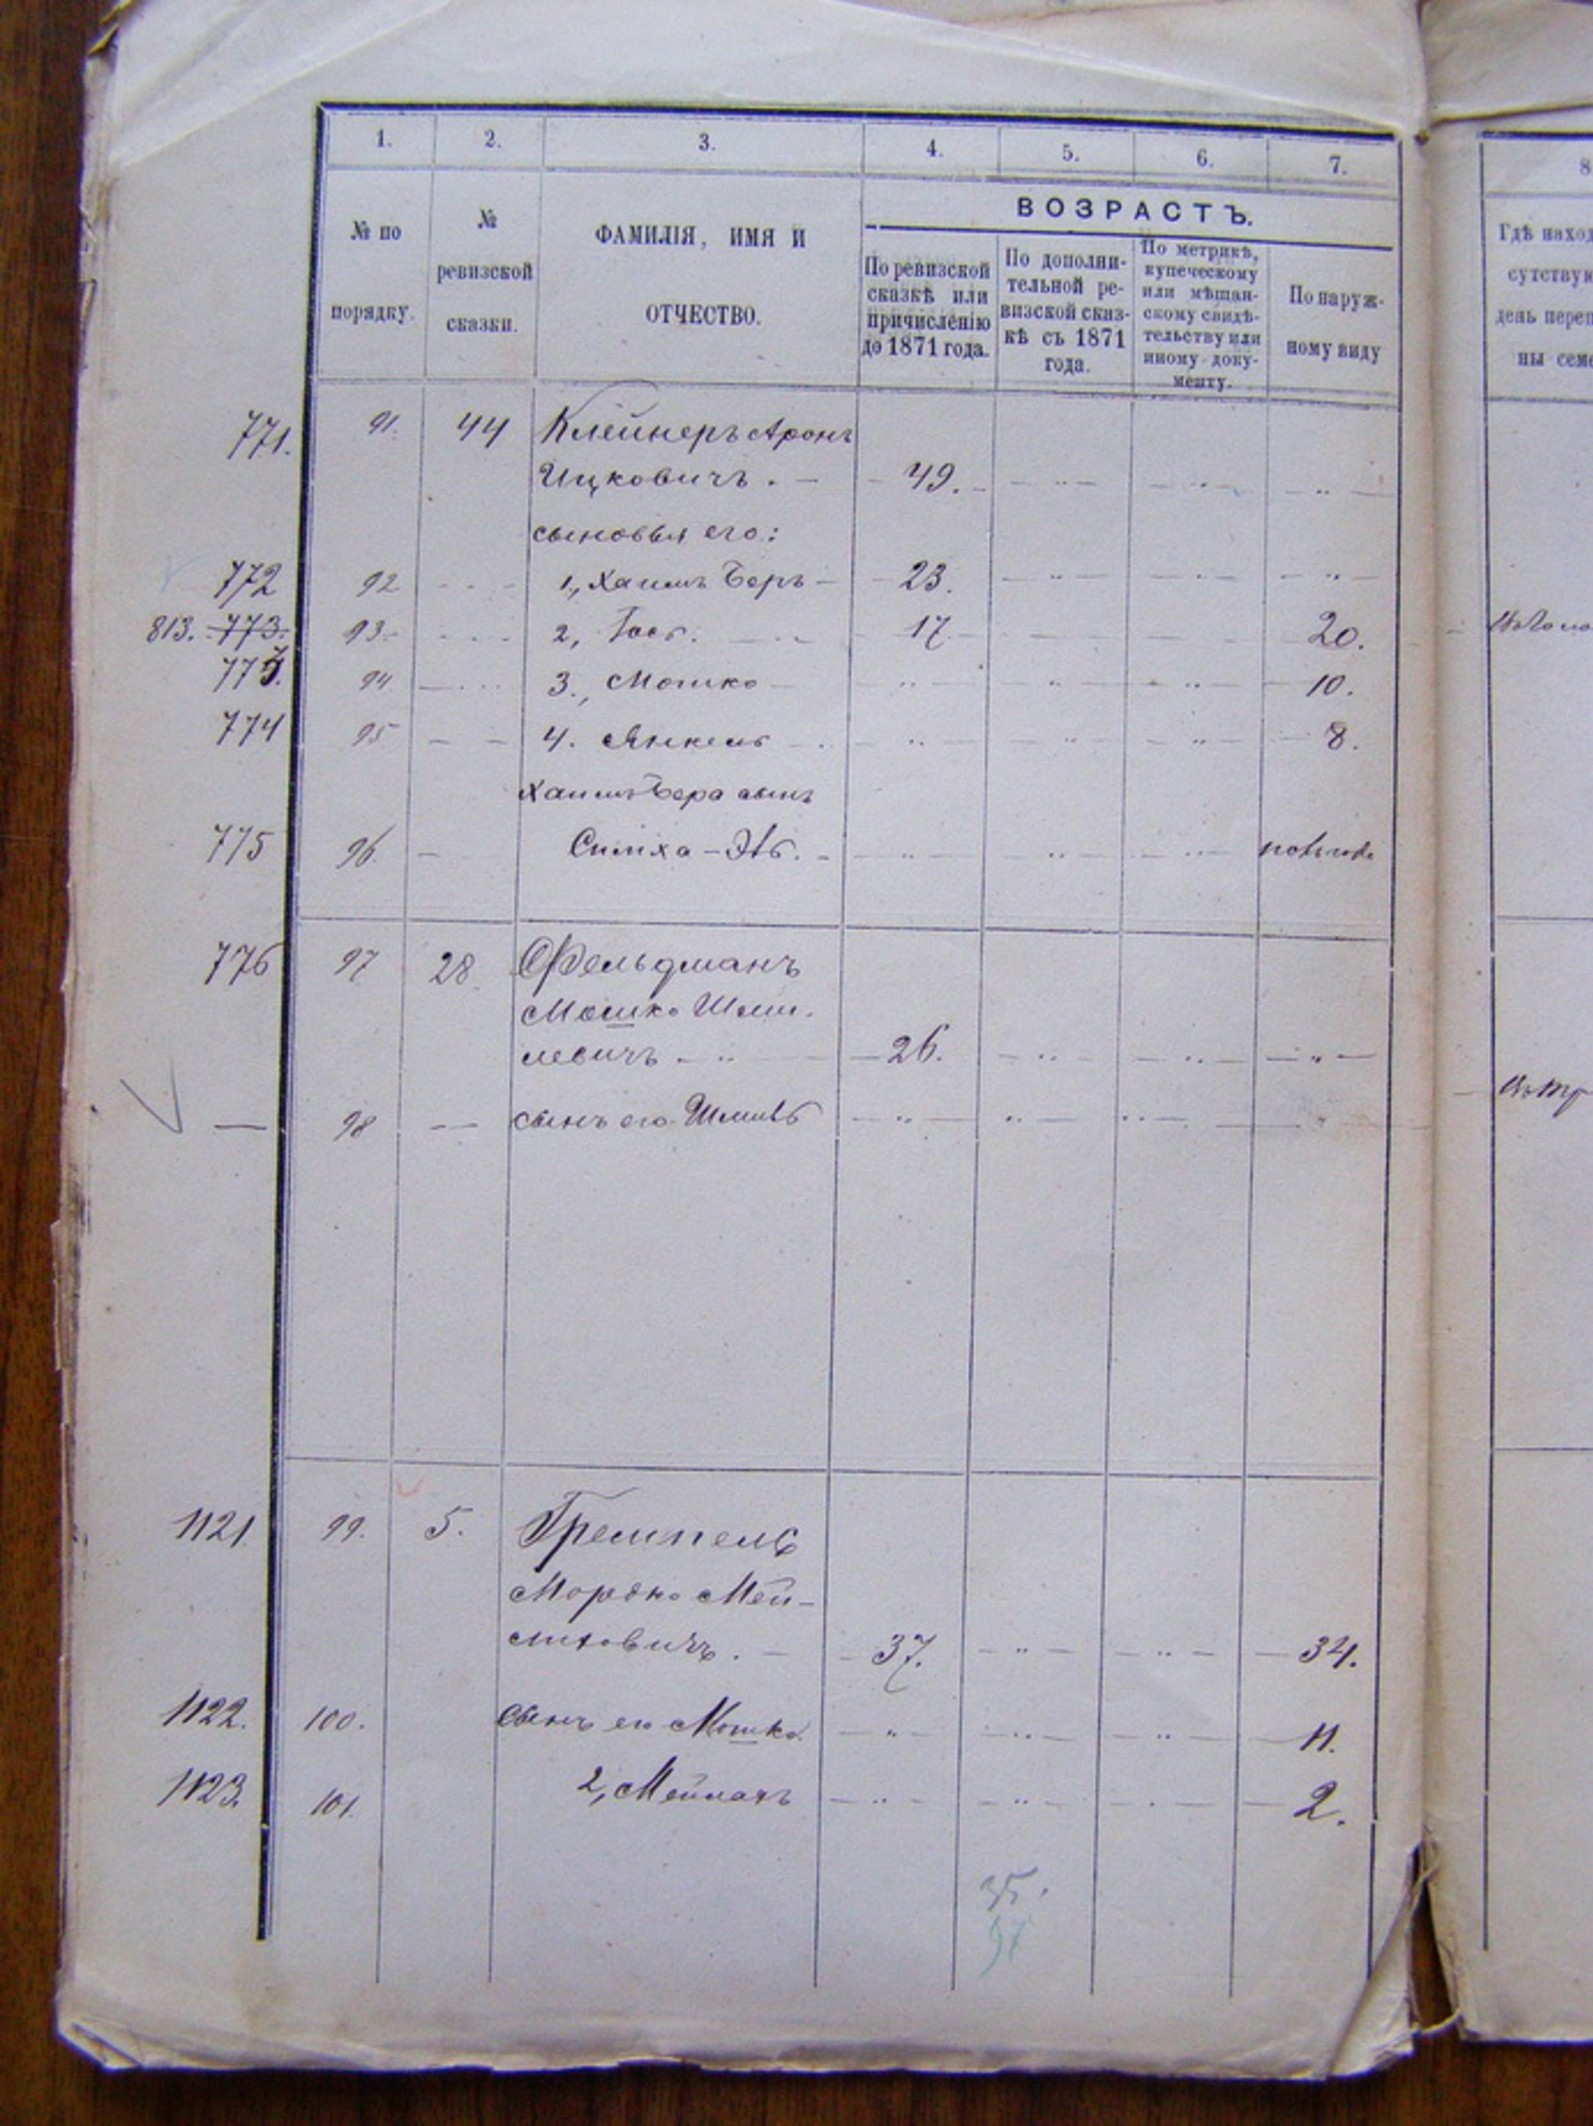 1. 2. 3. 4. 5. 6. 7.
ВОЗРАСТЪ.
№ по порядку.
№ ревизской сказки.
ФАМИЛІЯ, ИМЯ И ОТЧЕСТВО.
По ревизской сказкѣ или причисленію до 1871 года.
По дополнительной ревизской сказкѣ съ 1871 года.
По метрикѣ, купеческому или мѣщанскому свидѣтельству или иному документу.
По наружному виду
771. 91. 44 Клейнеръ Аронъ
Ицковичъ. — 49.
сыновья его:
772 92 1, Хаимъ Беръ — 23.
813. 773. 93. 2, 17 20.
773. 94 3., Мошко 10.
774 95 4. Янкель 8.
Хаимъ Бера сынъ
775 96. Симха-
776 97 28 Фельдманъ
Мошко Шми-
левичъ 26.
98 сынъ его
1121. 99. 5. Гремпель
Мордко Мей-
37. 34.
1122. 100. сынъ его Мошко 11.
1123. 101. 2, 2.
35.
97
8
Гдѣ наход
сутствую
день переп
ны семе